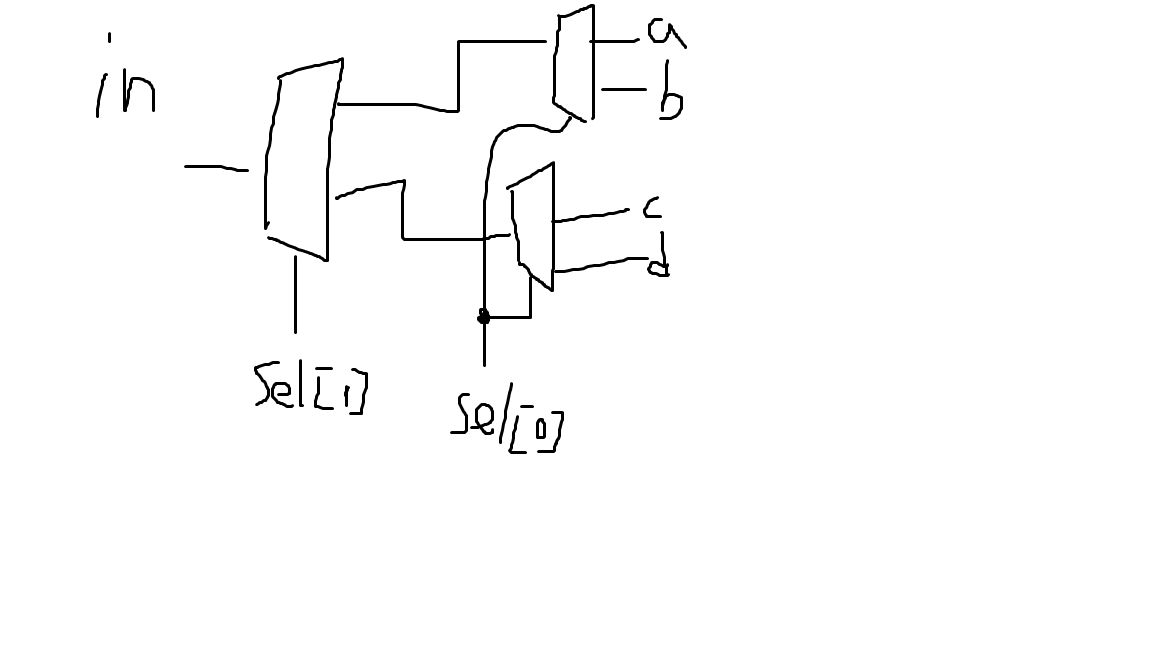 in
a
b
c
d
Sel[1]
Sel[0]